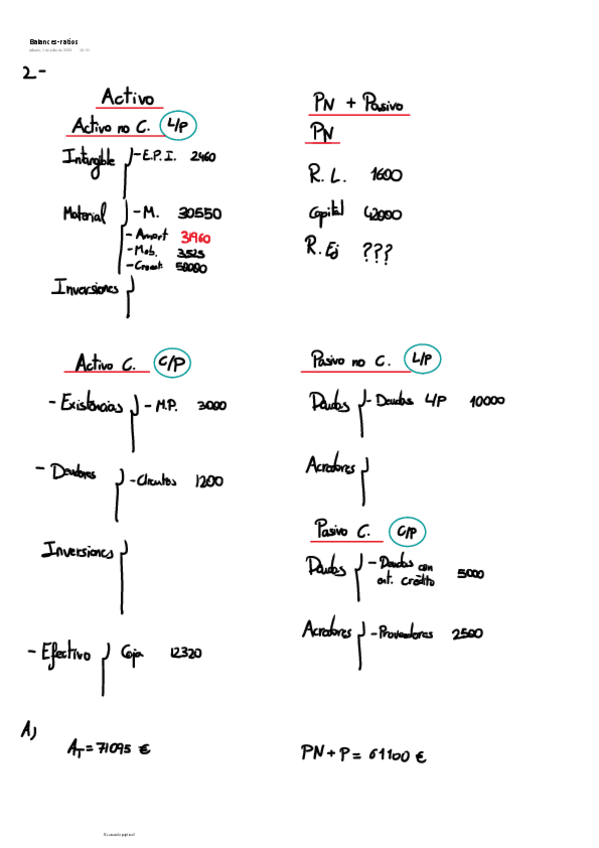 Balances-ratios
2-
Activo
Activo no C. L/P
Intangible - E.P.I. 2460
Material - M. 30550
- Amort 31960
- Mob. 3525
- 50000
Inversiones
PN + Pasivo
PN
R. L. 1600
Capital 42000
R. Ej ???
Activo C. C/P
- Existencias - M.P. 3000
- Deudores - Clientes 1200
Inversiones
- Efectivo Caja 12320
Pasivo no C. L/P
Deudas - Deudas L/P 10000
Acredores
Pasivo C. C/P
Deudas - Deudas con
ent. crédito 5000
Acredores - Proveedores 2500
A)
AT = 71095 €
PN + P = 61100 €